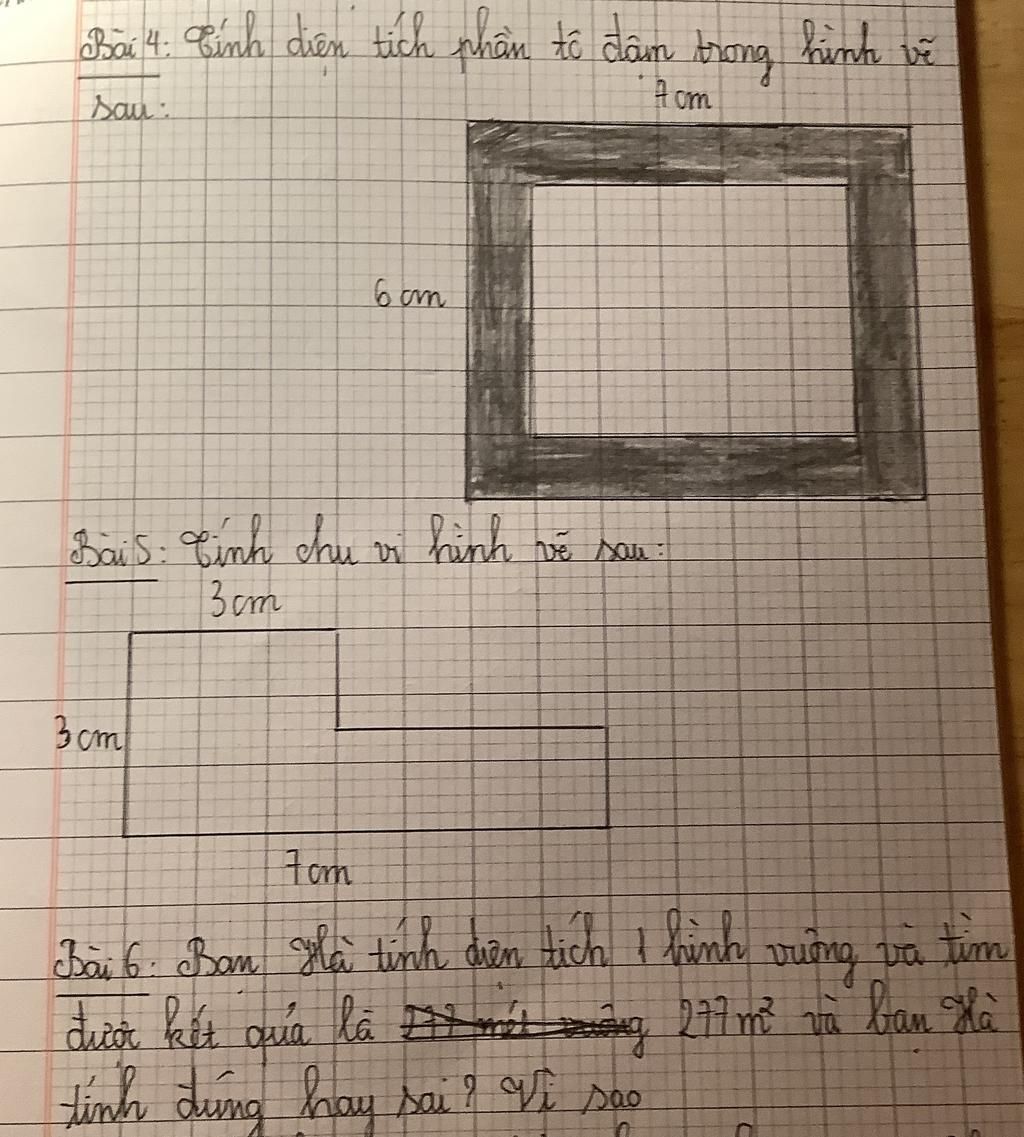 Bài 4: Tính diện tích phần tô đậm trong hình vẽ
sau:
7 cm
6 cm
Bài 5: Tính chu vi hình vẽ sau:
3 cm
3 cm
7 cm
Bài 6: Bạn Hà tính diện tích 1 hình vuông và tìm
được kết quả là 277 mét vuông 277 m² và bạn Hà
tính đúng hay sai? Vì sao